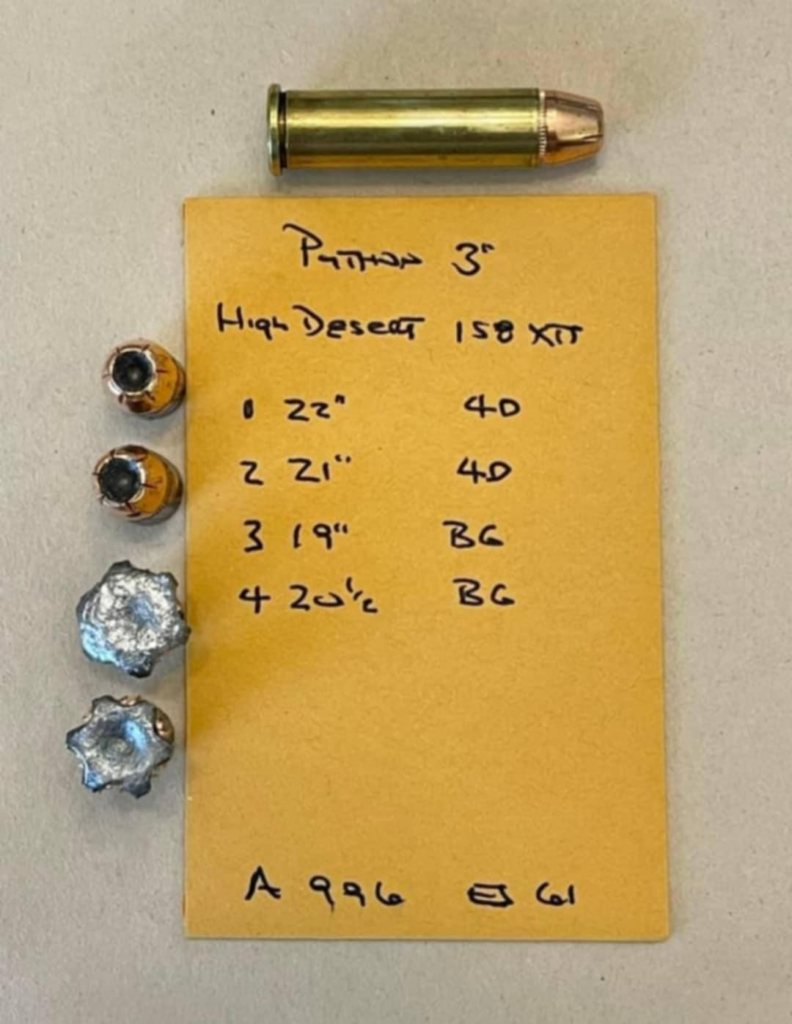 Python 3"
High Desert 158 XTP
1 22" 4D
2 21" 4D
3 19" BG
4 20 1/2 BG
A 996 E 61